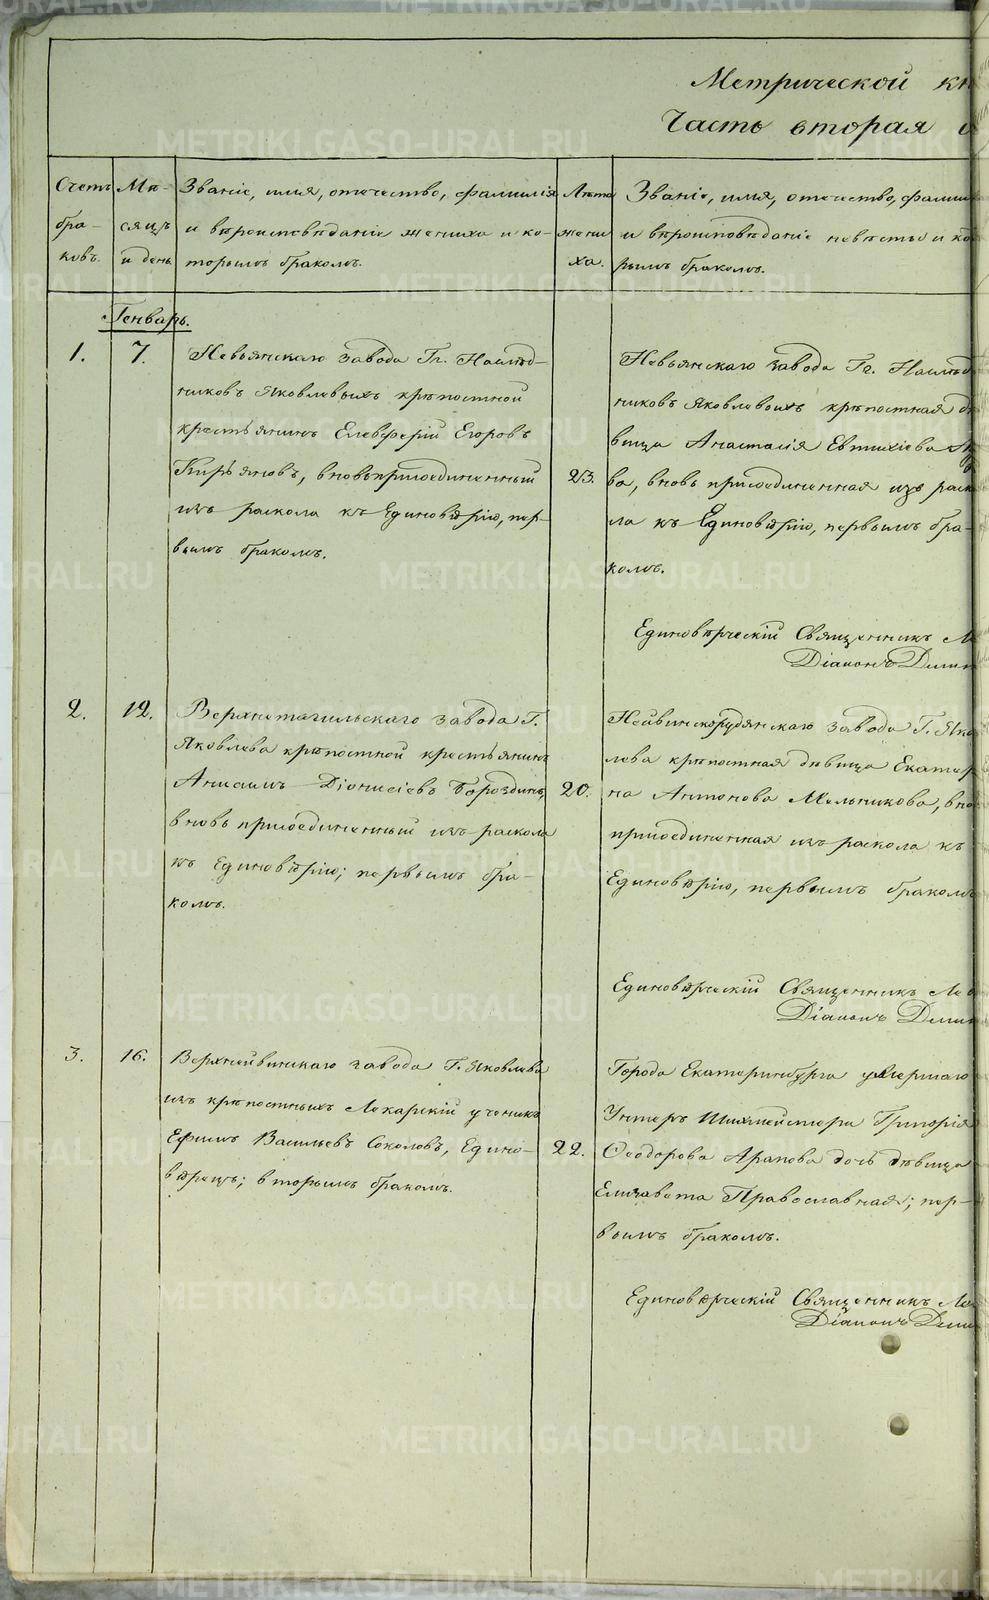 Метрической кн
Часть вторая о
Счетъ
бра-
ковъ.
Мѣ-
сяцъ
и день
Званіе, имя, отчество, фамилія
и вѣроисповѣданіе жениха и ко-
торымъ бракомъ.
Лѣта
жени
ха.
Званіе, имя, отчество, фамил
и вѣроисповѣданіе невѣсты и ко
рымъ бракомъ.
Генварь.
1.
7.
Невьянскаго завода Гг. Наслѣд-
никовъ Яковлевыхъ крѣпостной
крестьянинъ Елевферій Егоровъ
Кирьяновъ, вновьприсоединенный
изъ раскола къ Единовѣрію, пер-
вымъ бракомъ.
23.
Невьянскаго завода Гг. Наслѣд
никовъ Яковлевыхъ крѣпостная дѣ
вица Анастасія Евтихіева
ва, вновь присоединенная изъ раск
ла къ Единовѣрію, первымъ бра-
комъ.
Единовѣрческій Священникъ
Діаконъ Дими
2.
12.
Верхнетагильскаго завода Г.
Яковлева крѣпостной крестьянинъ
Анисимъ Діонисіевъ Бороздинъ,
вновь присоединенный изъ раскола
къ Единовѣрію; первымъ бра-
комъ.
20.
Нейвинскорудянскаго завода Г. Яко
лева крѣпостная дѣвица Екатер
на Антонова Мельникова, вно
присоединенная изъ раскола къ
Единовѣрію, первымъ бракомъ
Единовѣрческій Священникъ
Діаконъ Дими
3.
16.
Верхнейвинскаго завода Г. Яковлева
изъ крѣпостныхъ Лекарскій ученикъ
Ефимъ Васильевъ Соколовъ, Едино-
вѣрецъ; вторымъ бракомъ.
22.
Города Екатеринбурга умершаго
Унтеръ Шихтмейстера Григорія
Ѳеодорова Арапова дочь дѣвица
Елизавета Православная; пер-
вымъ бракомъ.
Единовѣрческій Священникъ
Діаконъ Дими
METRIKI.GASO-URAL.RU